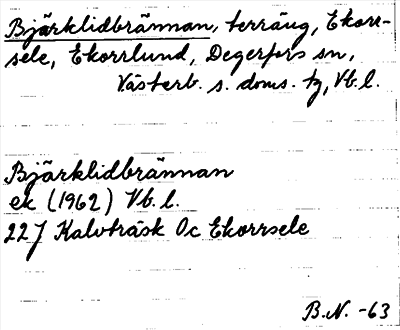 Bjärklidbrännan, terräng, Ekorr-
sele, Ekorrlund, Degerfors sn,
Västerb. s. doms. tg, Vb. l.
Bjärklidbrännan
ek (1962) Vb. l.
227 Kalvträsk Oc Ekorrsele
B.N. -63